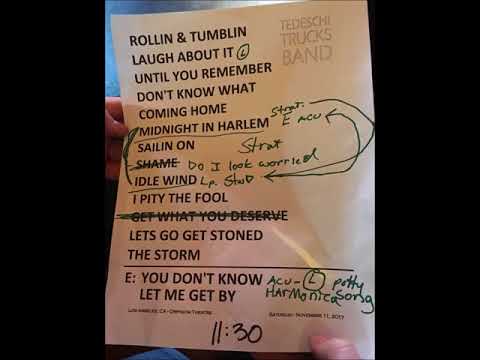 TEDESCHI
TRUCKS
BAND
ROLLIN & TUMBLIN
LAUGH ABOUT IT L
UNTIL YOU REMEMBER
DON'T KNOW WHAT
COMING HOME
MIDNIGHT IN HARLEM Strat.
E ACU
SAILIN ON Strat
SHAME Do I look worried
IDLE WIND Lp. StuD
I PITY THE FOOL
GET WHAT YOU DESERVE
LETS GO GET STONED
THE STORM
E: YOU DON'T KNOW ACU- L potty
LET ME GET BY HARMonica Song
LOS ANGELES, CA - ORPHEUM THEATRE SATURDAY - NOVEMBER 11, 2017
11:30